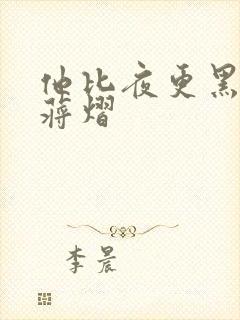 他比夜更黑
蒋熠
李晨